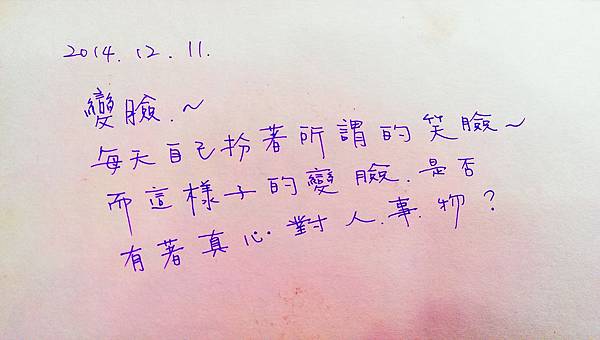 2014.12.11.
變臉.~
每天自己扮著所謂的笑臉~
而這樣子的變臉.是否
有著真心.對人.事.物?